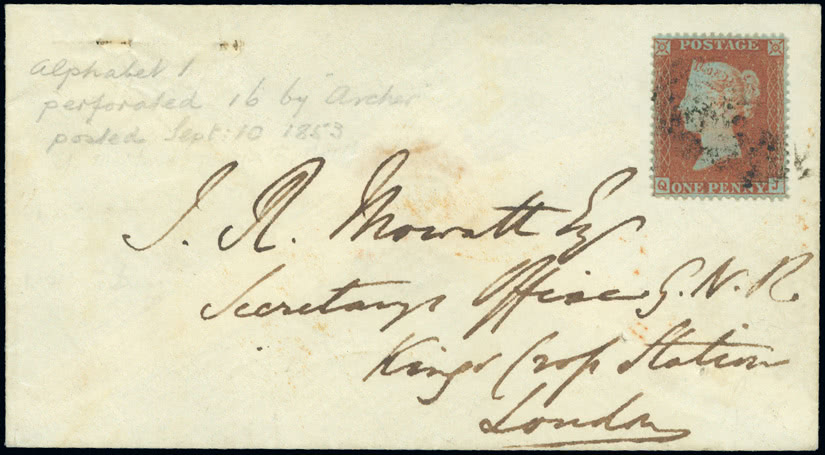 Alphabet 1
perforated 16 by "Archer"
posted Sept: 10 1853
POSTAGE
Q ONE PENNY J
J. R. Mowatt Esq
Secretarys Office G. N. R.
Kings Cross Station
London